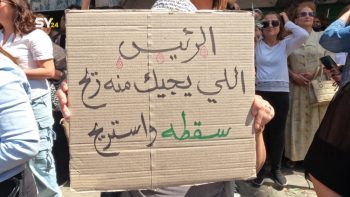 SY24
الرئيس
اللي يجيك منه ريح
سقطه واستريح